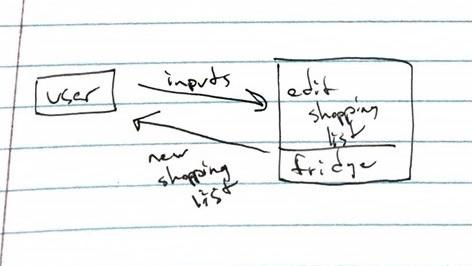 user
inputs
edit
shopping
list
fridge
new
shopping
list